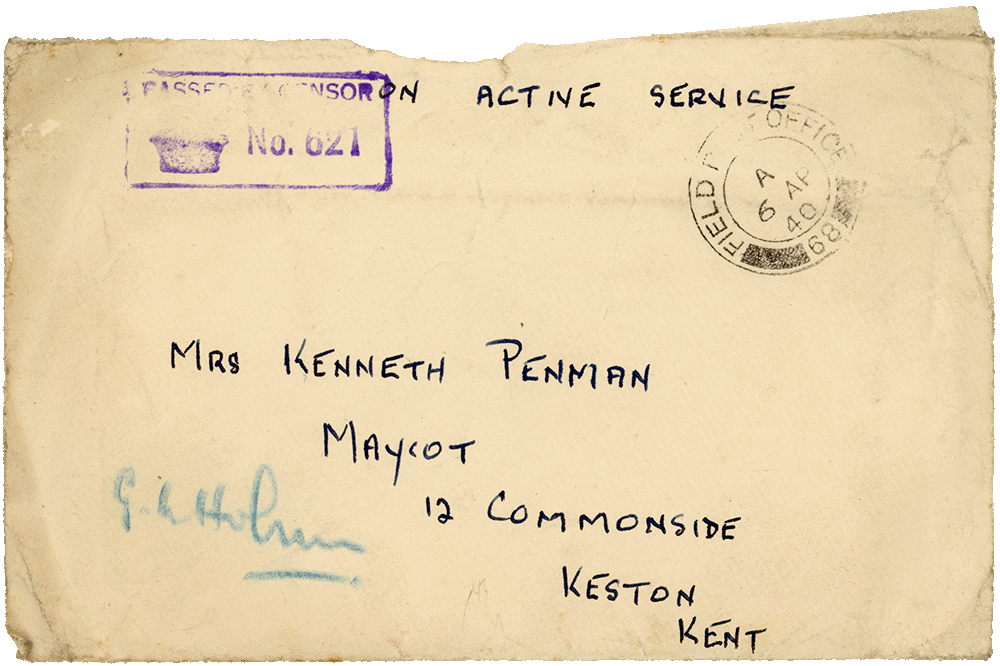 PASSED BY CENSOR
No. 621
ON ACTIVE SERVICE
FIELD POST OFFICE
68
A
6 AP
40
MRS KENNETH PENMAN
MAYCOT
12 COMMONSIDE
KESTON
KENT